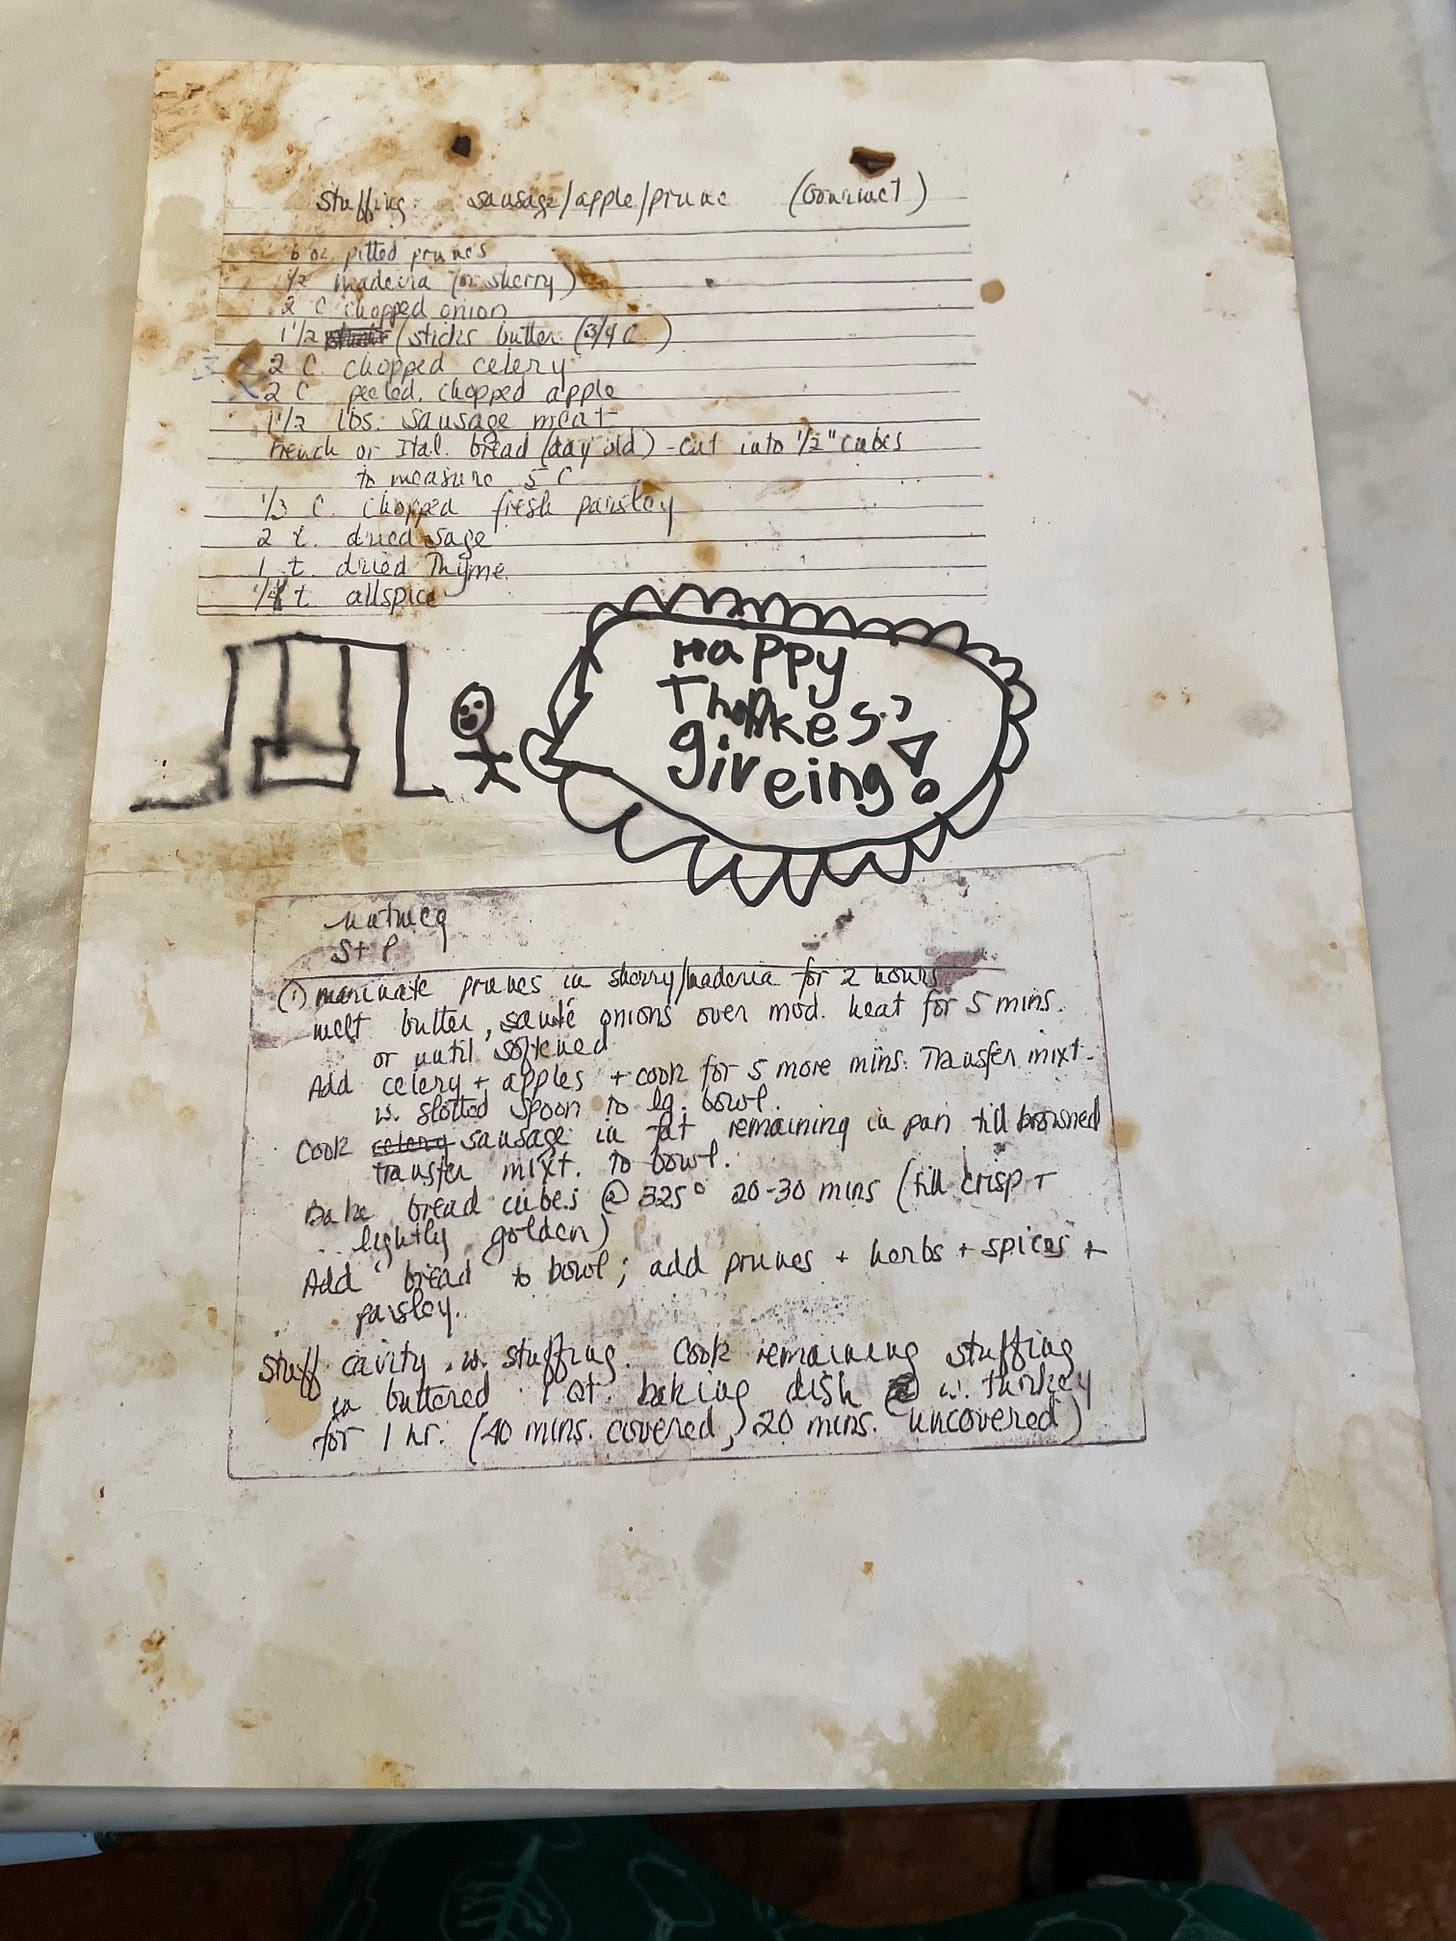 Stuffing: sausage/apple/prune (Gourmet)
6 oz. pitted prunes
1/2 madeira (or sherry)
2 C chopped onion
1 1/2 (sticks butter (3/4 C)
2 C. chopped celery
2 C peeled, chopped apple
1 1/2 lbs. sausage meat
French or Ital. bread (day old) - cut into 1/2" cubes
to measure 5 C
1/3 C. chopped fresh parsley
2 t. dried sage
1 t. dried Thyme
1/4 t allspice
Happy
Thankes
giveing!
nutmeg
S+P
(1) marinate prunes in sherry/maderia for 2 hours
melt butter, sauté onions over mod. heat for 5 mins.
or until softened
Add celery + apples + cook for 5 more mins. Transfer mixt.
w. slotted spoon to lg. bowl.
Cook celery sausage in fat remaining in pan till browned
transfer mixt. to bowl.
Bake bread cubes @ 325° 20-30 mins (till crisp +
lightly golden)
Add bread to bowl; add prunes + herbs + spices +
parsley.
Stuff cavity w. stuffing. Cook remaining stuffing
in buttered 1 Qt. baking dish w. turkey
for 1 hr. (40 mins. covered, 20 mins. uncovered)